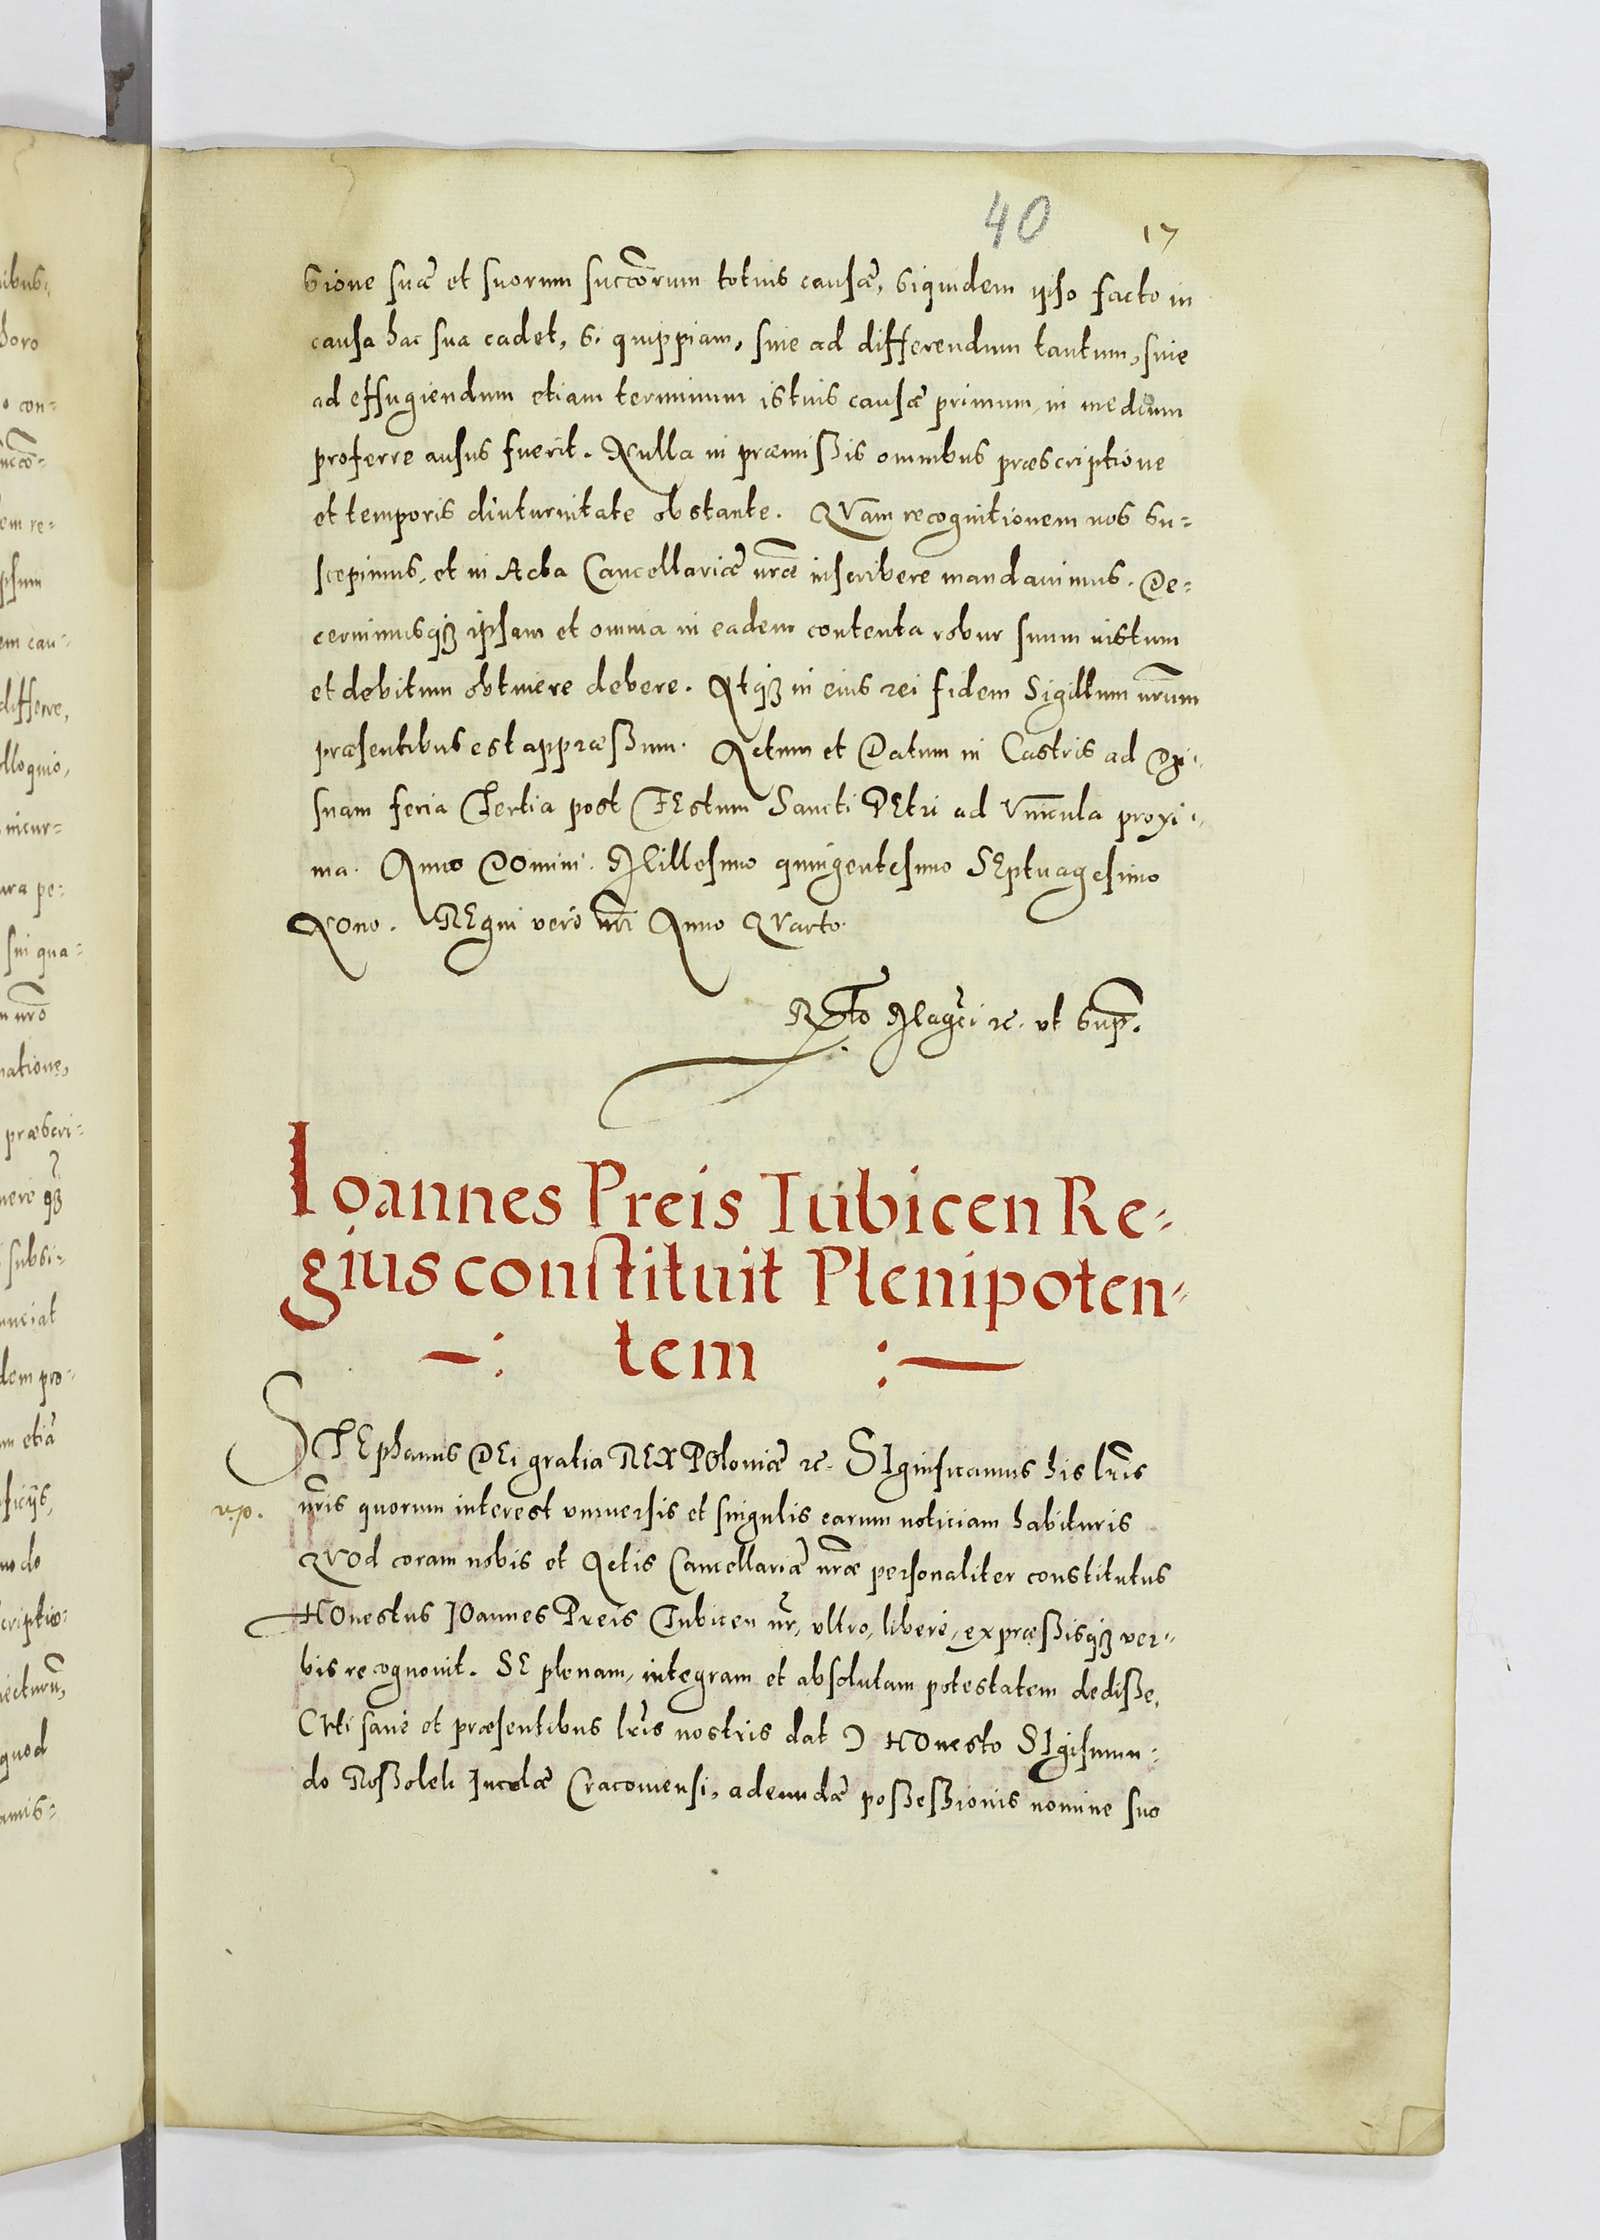 40 17
sione suæ et suorum succorum totius causæ, siquidem ipso facto in
causa hac sua cadet, si quippiam, siue ad differendum tantum, siue
ad effugiendum etiam terminum istius causæ primum, in medium
proferre ausus fuerit. Nulla in præmißis omnibus præscriptione
et temporis diuturnitate obstante. QVam recognitionem nos su=
scepimus, et in Acta Cancellariæ nræ inscribere mandauimus. De=
cernimusq3 ipsam et omnia in eadem contenta robur suum iustum
et debitum obtinere debere. Atq3 in eius rei fidem Sigillum nrum
præsentibus est appræßum. Actum et Datum in Castris ad Di=
snam feria Tertia post FEstum Sancti PEtri ad Vincula proxi=
ma. Anno DOmini. Millesimo quingentesimo SEptuagesimo
NOno. REgni vero nri Anno QVarto.
Rto Magci etc. ut sup.
Ioannes Preis Tubicen Re=
gius constituit Plenipoten=
tem
STEphanus DEi gratia REX POloniæ etc. SIgnificamus his lris
nris quorum interest vniuersis et singulis earum noticiam habituris
QVod coram nobis et Actis Cancellariæ nræ personaliter constitutus
HOnestus IOannes Preis Tubicen nr, vltro, libere, expræßisq3 ver=
bis recognouit. SE plenam, integram et absolutam potestatem dediße,
(Vti sane et præsentibus lris nostris dat) HOnesto SIgismun=
do Incolæ Cracouiensi, adeundæ poßeßionis nomine suo